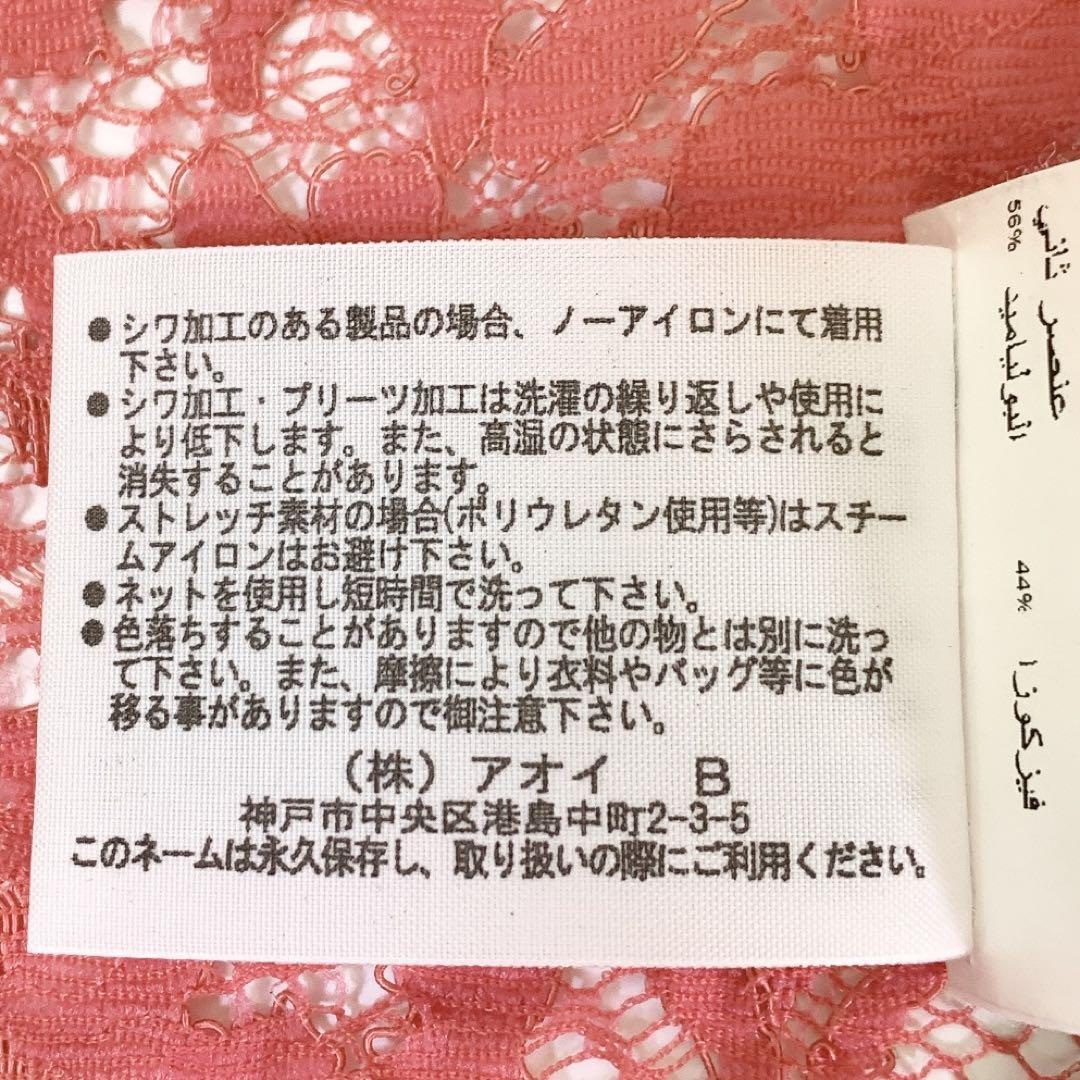 ●シワ加工のある製品の場合、ノーアイロンにて着用
下さい。
●シワ加工・プリーツ加工は洗濯の繰り返しや使用に
より低下します。また、高湿の状態にさらされると
消失することがあります。
●ストレッチ素材の場合(ポリウレタン使用等)はスチー
ムアイロンはお避け下さい。
●ネットを使用し短時間で洗って下さい。
●色落ちすることがありますので他の物とは別に洗っ
て下さい。また、摩擦により衣料やバッグ等に色が
移る事がありますので御注意下さい。
(株)アオイ B
神戸市中央区港島中町2-3-5
このネームは永久保存し、取り扱いの際にご利用ください。
عنصر ثاني
56%
44%